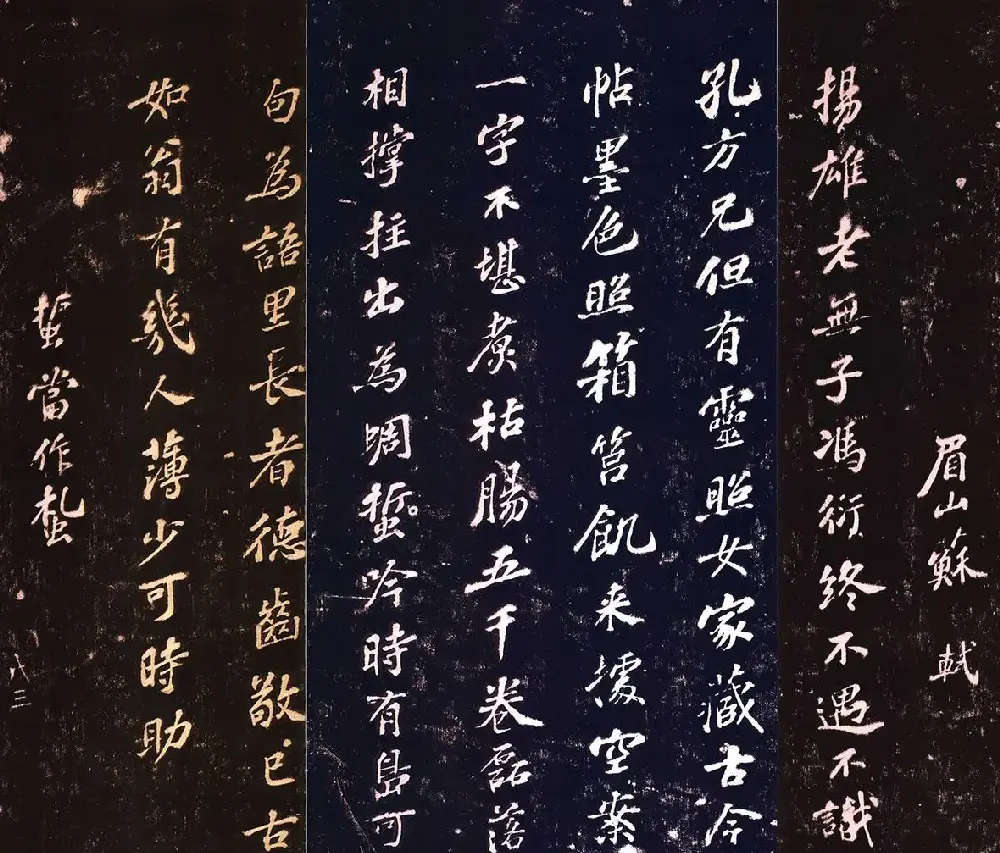 眉山蘇軾
揚雄老無子馮衍終不遇不識
孔方兄但有靈照女家藏古今
帖墨色照箱筥飢来據空案
一字不堪煮枯腸五千卷磊落
相撐拄出為蜩蜇吟時有島可
句為語里長者德齒敬已古
如翁有幾人薄少可時助
蜇當作蚻